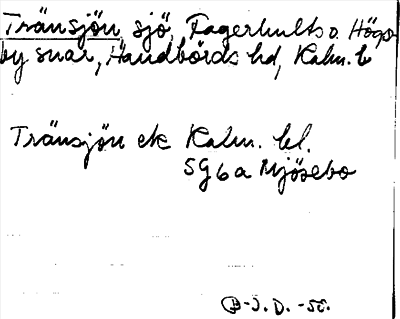 Tränsjön, sjö, Fagerhults o. Högs-
by snar, Handbörds hd, Kalm. l.
Tränsjön ek Kalm. bl.
5G6a Mjösebo
B-J.D. -55.